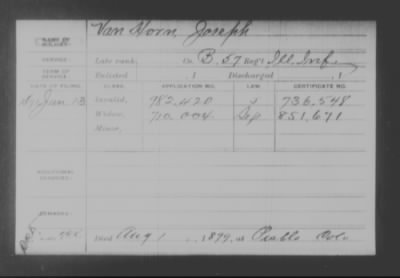 NAME OF SOLDIER: Van Horn, Joseph
SERVICE: Late rank, Co. B, 57 Reg't Ill. Inf.
TERM OF SERVICE: Enlisted , 1 Discharged , 1
DATE OF FILING. CLASS. APPLICATION NO. LAW. CERTIFICATE NO.
Jan 13 Invalid, 982.420 736.548
Widow, 710.004 851.671
Minor,
ADDITIONAL SERVICES:
REMARKS:
Died Aug 1, 1899, at Pueblo Colo